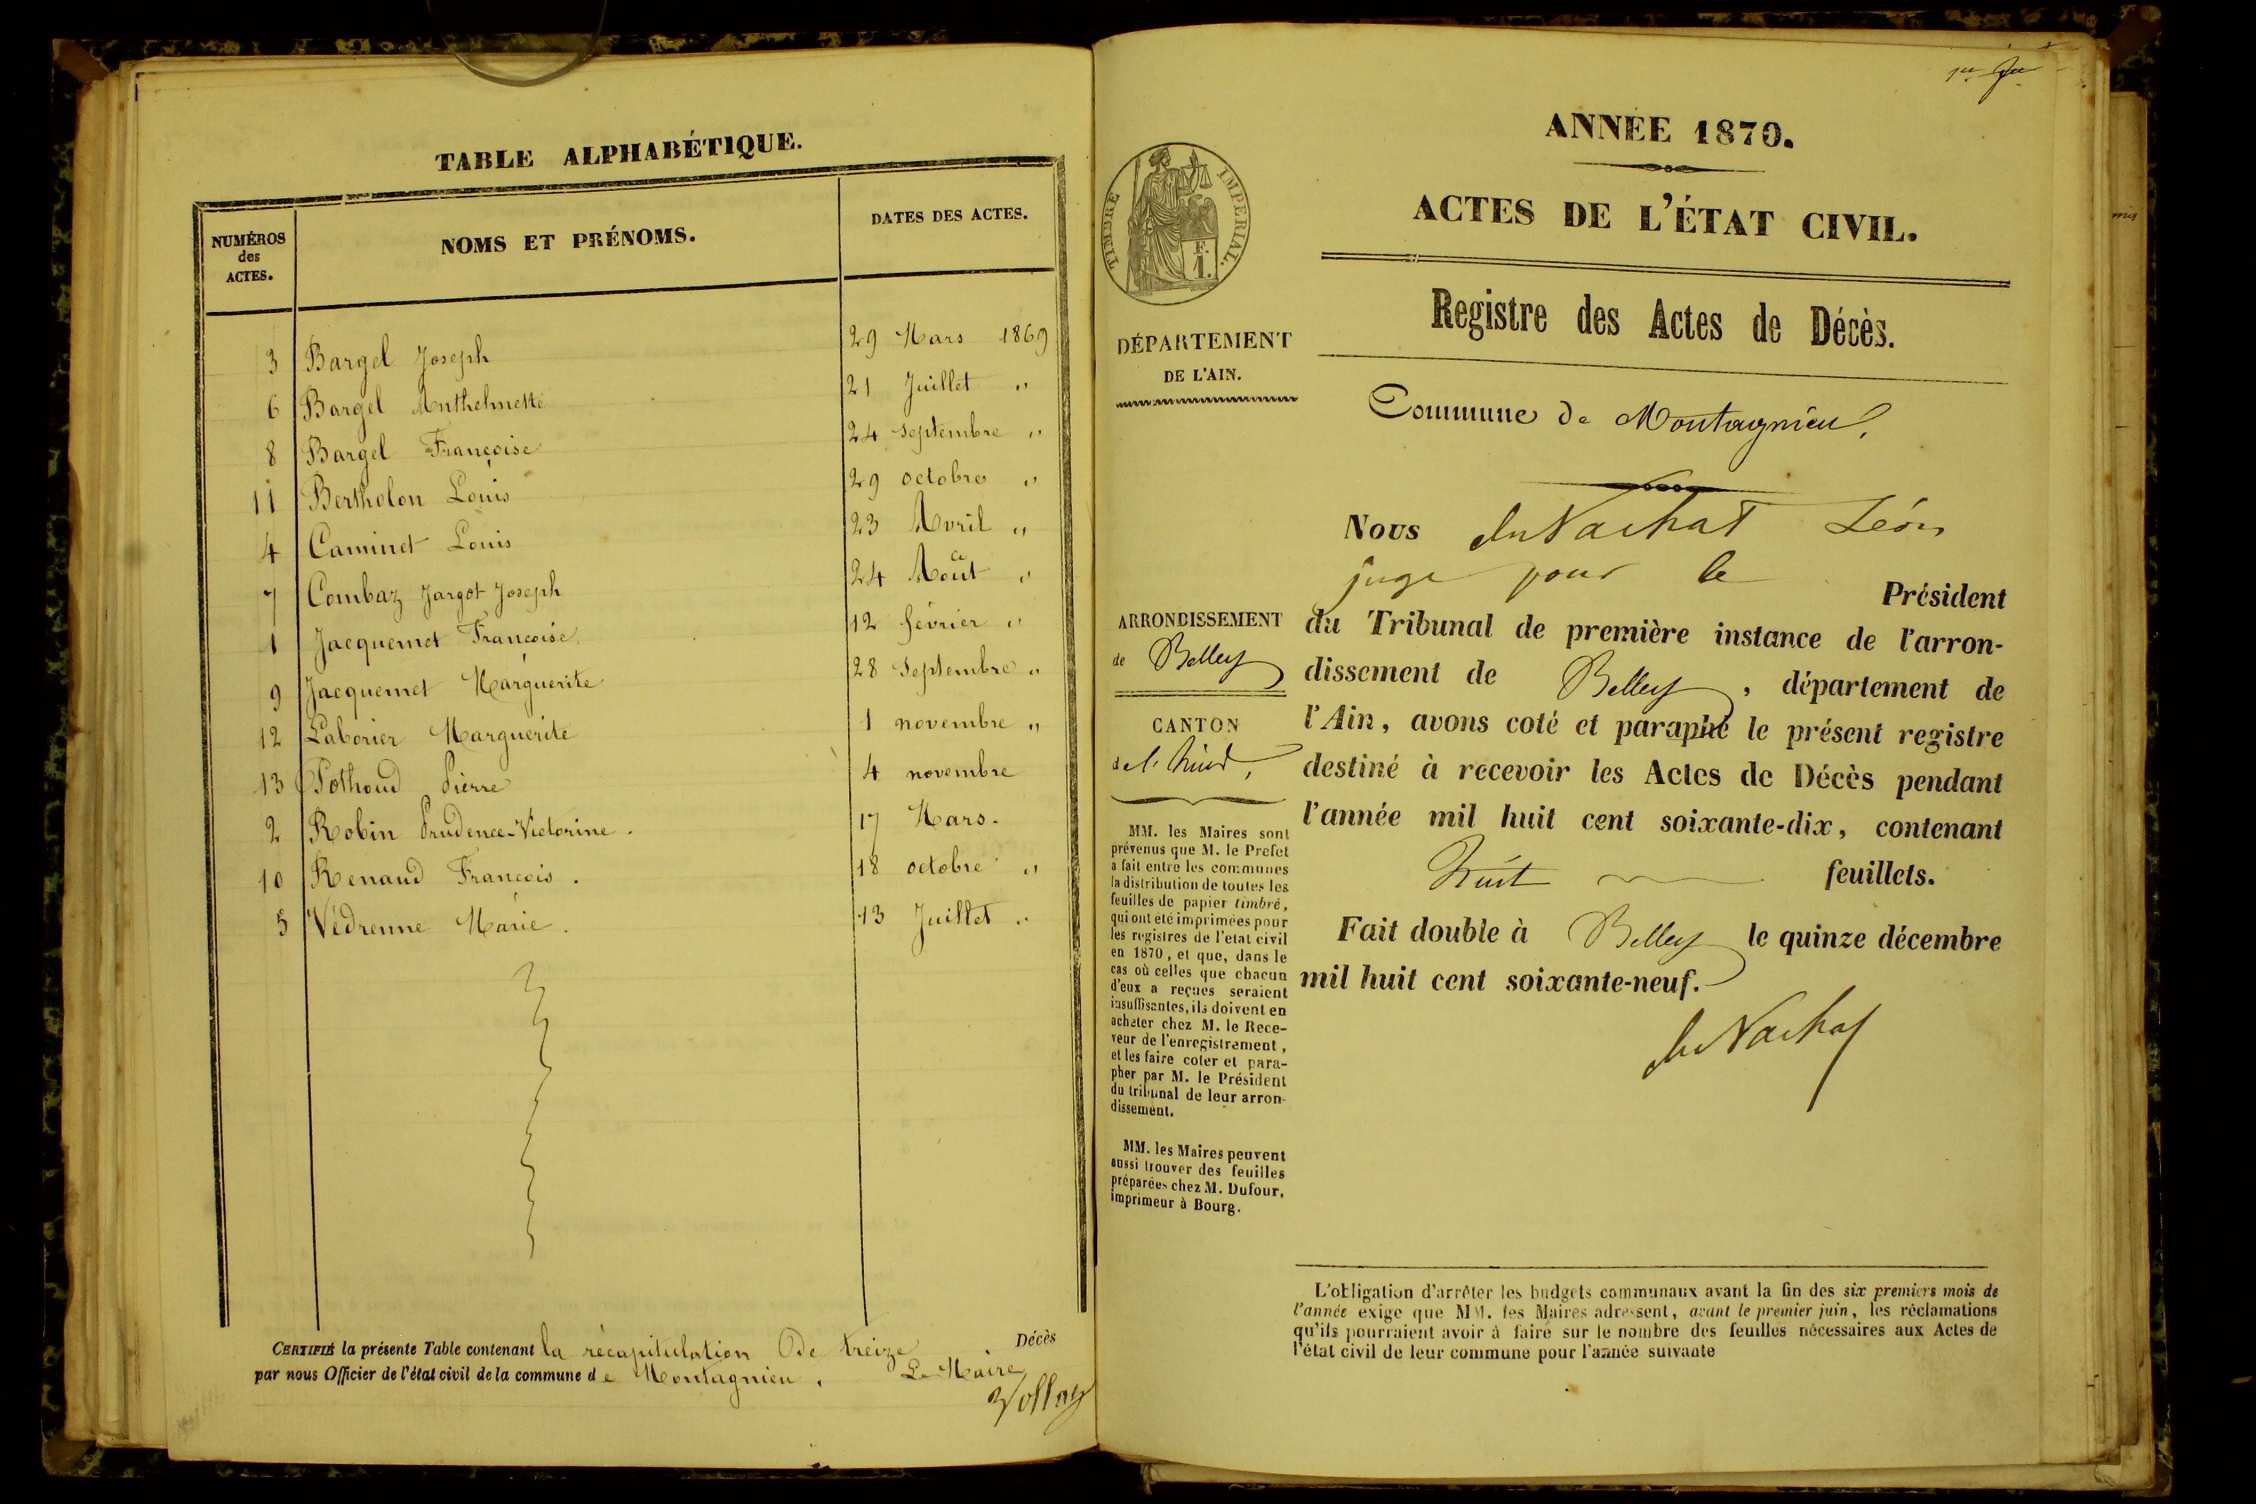 TABLE ALPHABÉTIQUE.
NUMÉROS des ACTES. NOMS ET PRÉNOMS. DATES DES ACTES.
3 Bargel Joseph 29 Mars 1869
6 Bargel Anthelmette 21 Juillet "
8 Bargel Françoise 24 septembre "
11 Bertholon Louis 29 octobre "
4 Caminet Louis 23 Avril "
7 Combaz Jargot Joseph 24 Août "
1 Jacquemet Françoise 12 février "
9 Jacquemet Marguerite 28 septembre "
12 Laborier Marguerite 1 novembre "
13 Pothoud Pierre 4 novembre
2 Robin Prudence-Victorine. 17 Mars.
10 Renaud François. 18 octobre "
5 Védrenne Marie. 13 Juillet "
CERTIFIÉ la présente Table contenant la récapitulation De treize Décès
par nous Officier de l'état civil de la commune de Montagnieu. Le Maire
ANNÉE 1870.
ACTES DE L'ÉTAT CIVIL.
Registre des Actes de Décès.
Commune de Montagnieu.
TIMBRE IMPERIAL.
F.
1.
DÉPARTEMENT
DE L'AIN.
ARRONDISSEMENT
de Belley
CANTON
MM. les Maires sont
prévenus que M. le Prefet
a fait entre les communes
la distribution de toutes les
feuilles de papier timbré,
qui ont été imprimées pour
les registres de l'état civil
en 1870, et que, dans le
cas où celles que chacun
d'eux a reçues seraient
insuffisantes, ils doivent en
acheter chez M. le Rece-
veur de l'enregistrement,
et les faire coter et para-
pher par M. le Président
du tribunal de leur arron-
dissement.
MM. les Maires peuvent
aussi trouver des feuilles
préparées chez M. Dufour,
imprimeur à Bourg.
Nous du Vachat Léon
juge pour le Président
du Tribunal de première instance de l'arron-
dissement de Belley, département de
l'Ain, avons coté et paraphé le présent registre
destiné à recevoir les Actes de Décès pendant
l'année mil huit cent soixante-dix, contenant
huit feuillets.
Fait double à Belley le quinze décembre
mil huit cent soixante-neuf.
du Vachat
L'obligation d'arrêter les budgets communaux avant la fin des six premiers mois de
l'année exige que MM. les Maires adressent, avant le premier juin, les réclamations
qu'ils pourraient avoir à faire sur le nombre des feuilles nécessaires aux Actes de
l'état civil de leur commune pour l'année suivante